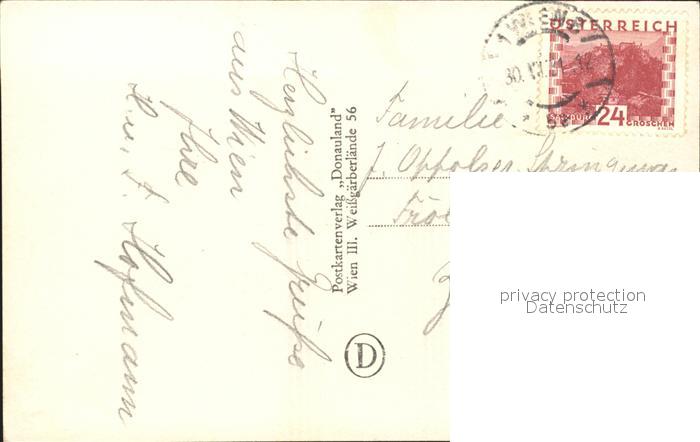 Herzlichste Grüße
aus Wien
Ihre
H. u. F. Hofmann
Postkartenverlag „Donauland"
Wien III. Weißgärberlände 56
D
WIEN
30.
ÖSTERREICH
24
GROSCHEN
Familie
J.
privacy protection
Datenschutz